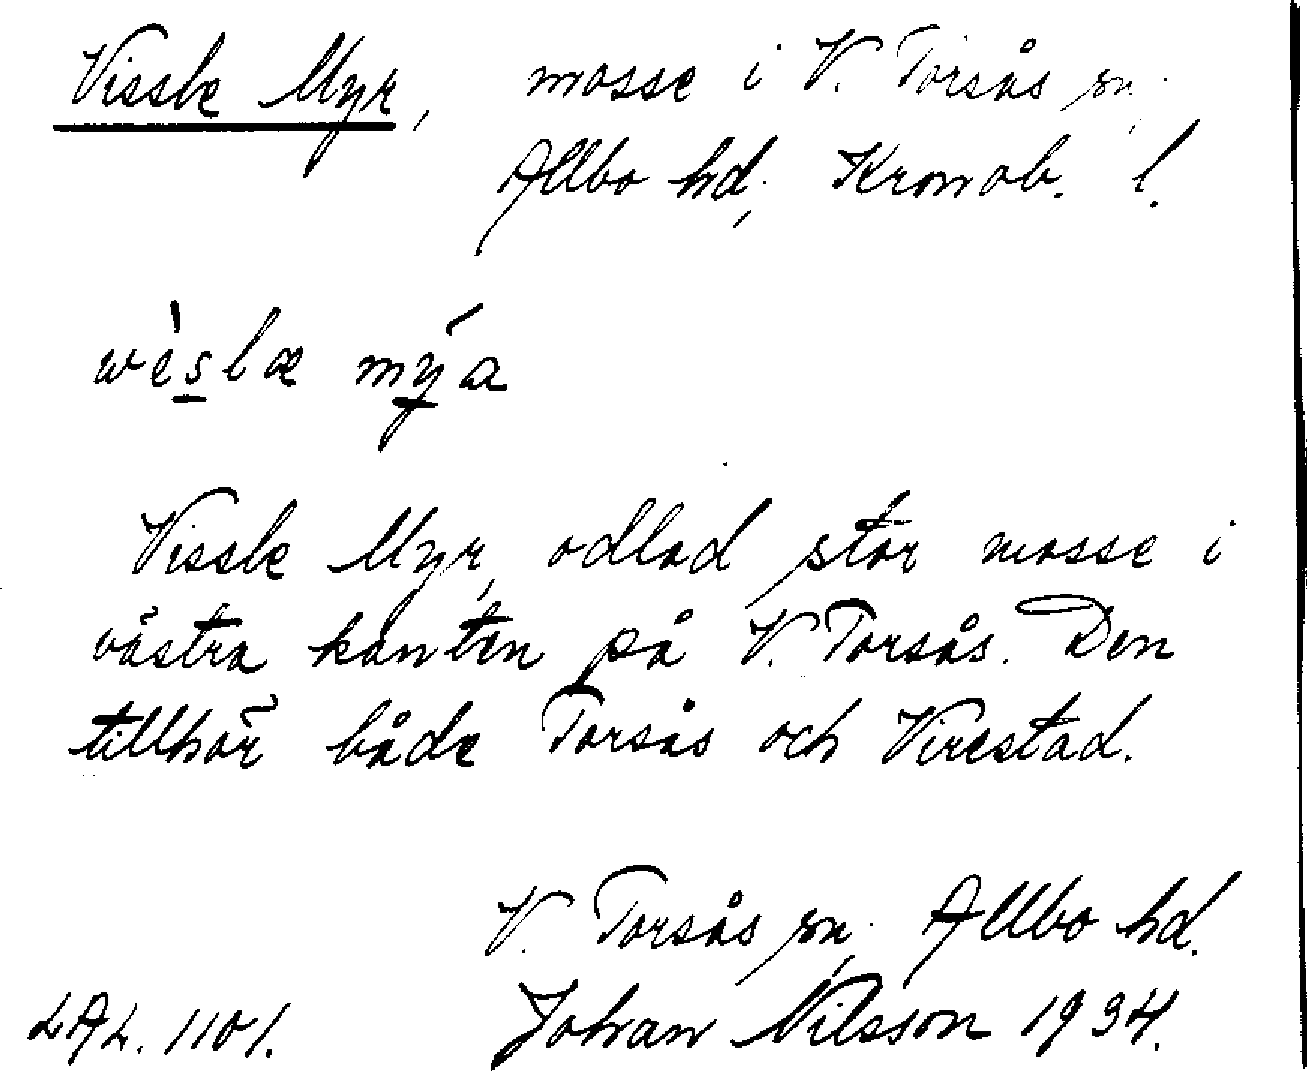 Vissle Myr, mosse i V. Torsås sn.
Allbo hd, Kronob. l.
wèslæ mýa
Vissle Myr, odlad stor mosse i
västra kanten på V. Torsås. Den
tillhör både Torsås och Virestad.
V. Torsås sn, Allbo hd.
LAL. 1101. Johan Nilsson 1934.